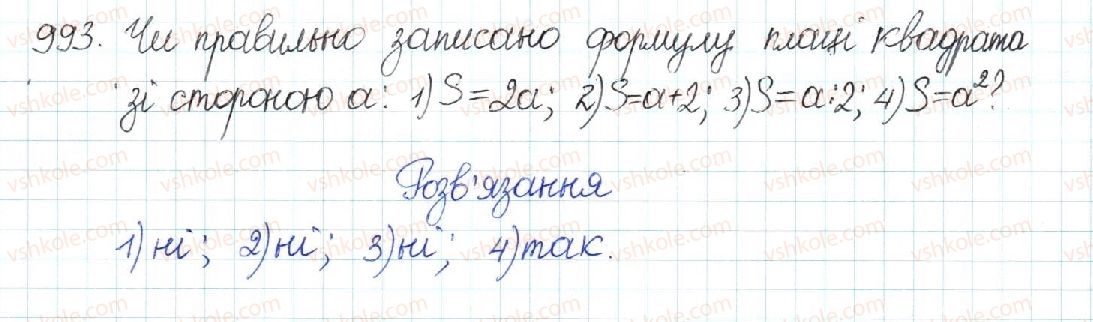 993. Чи правильно записано формулу площі квадрата
зі стороною a: 1) S=2a; 2) S=a+2; 3) S=a:2; 4) S=a²?
Розв'язання
1) ні; 2) ні; 3) ні; 4) так.